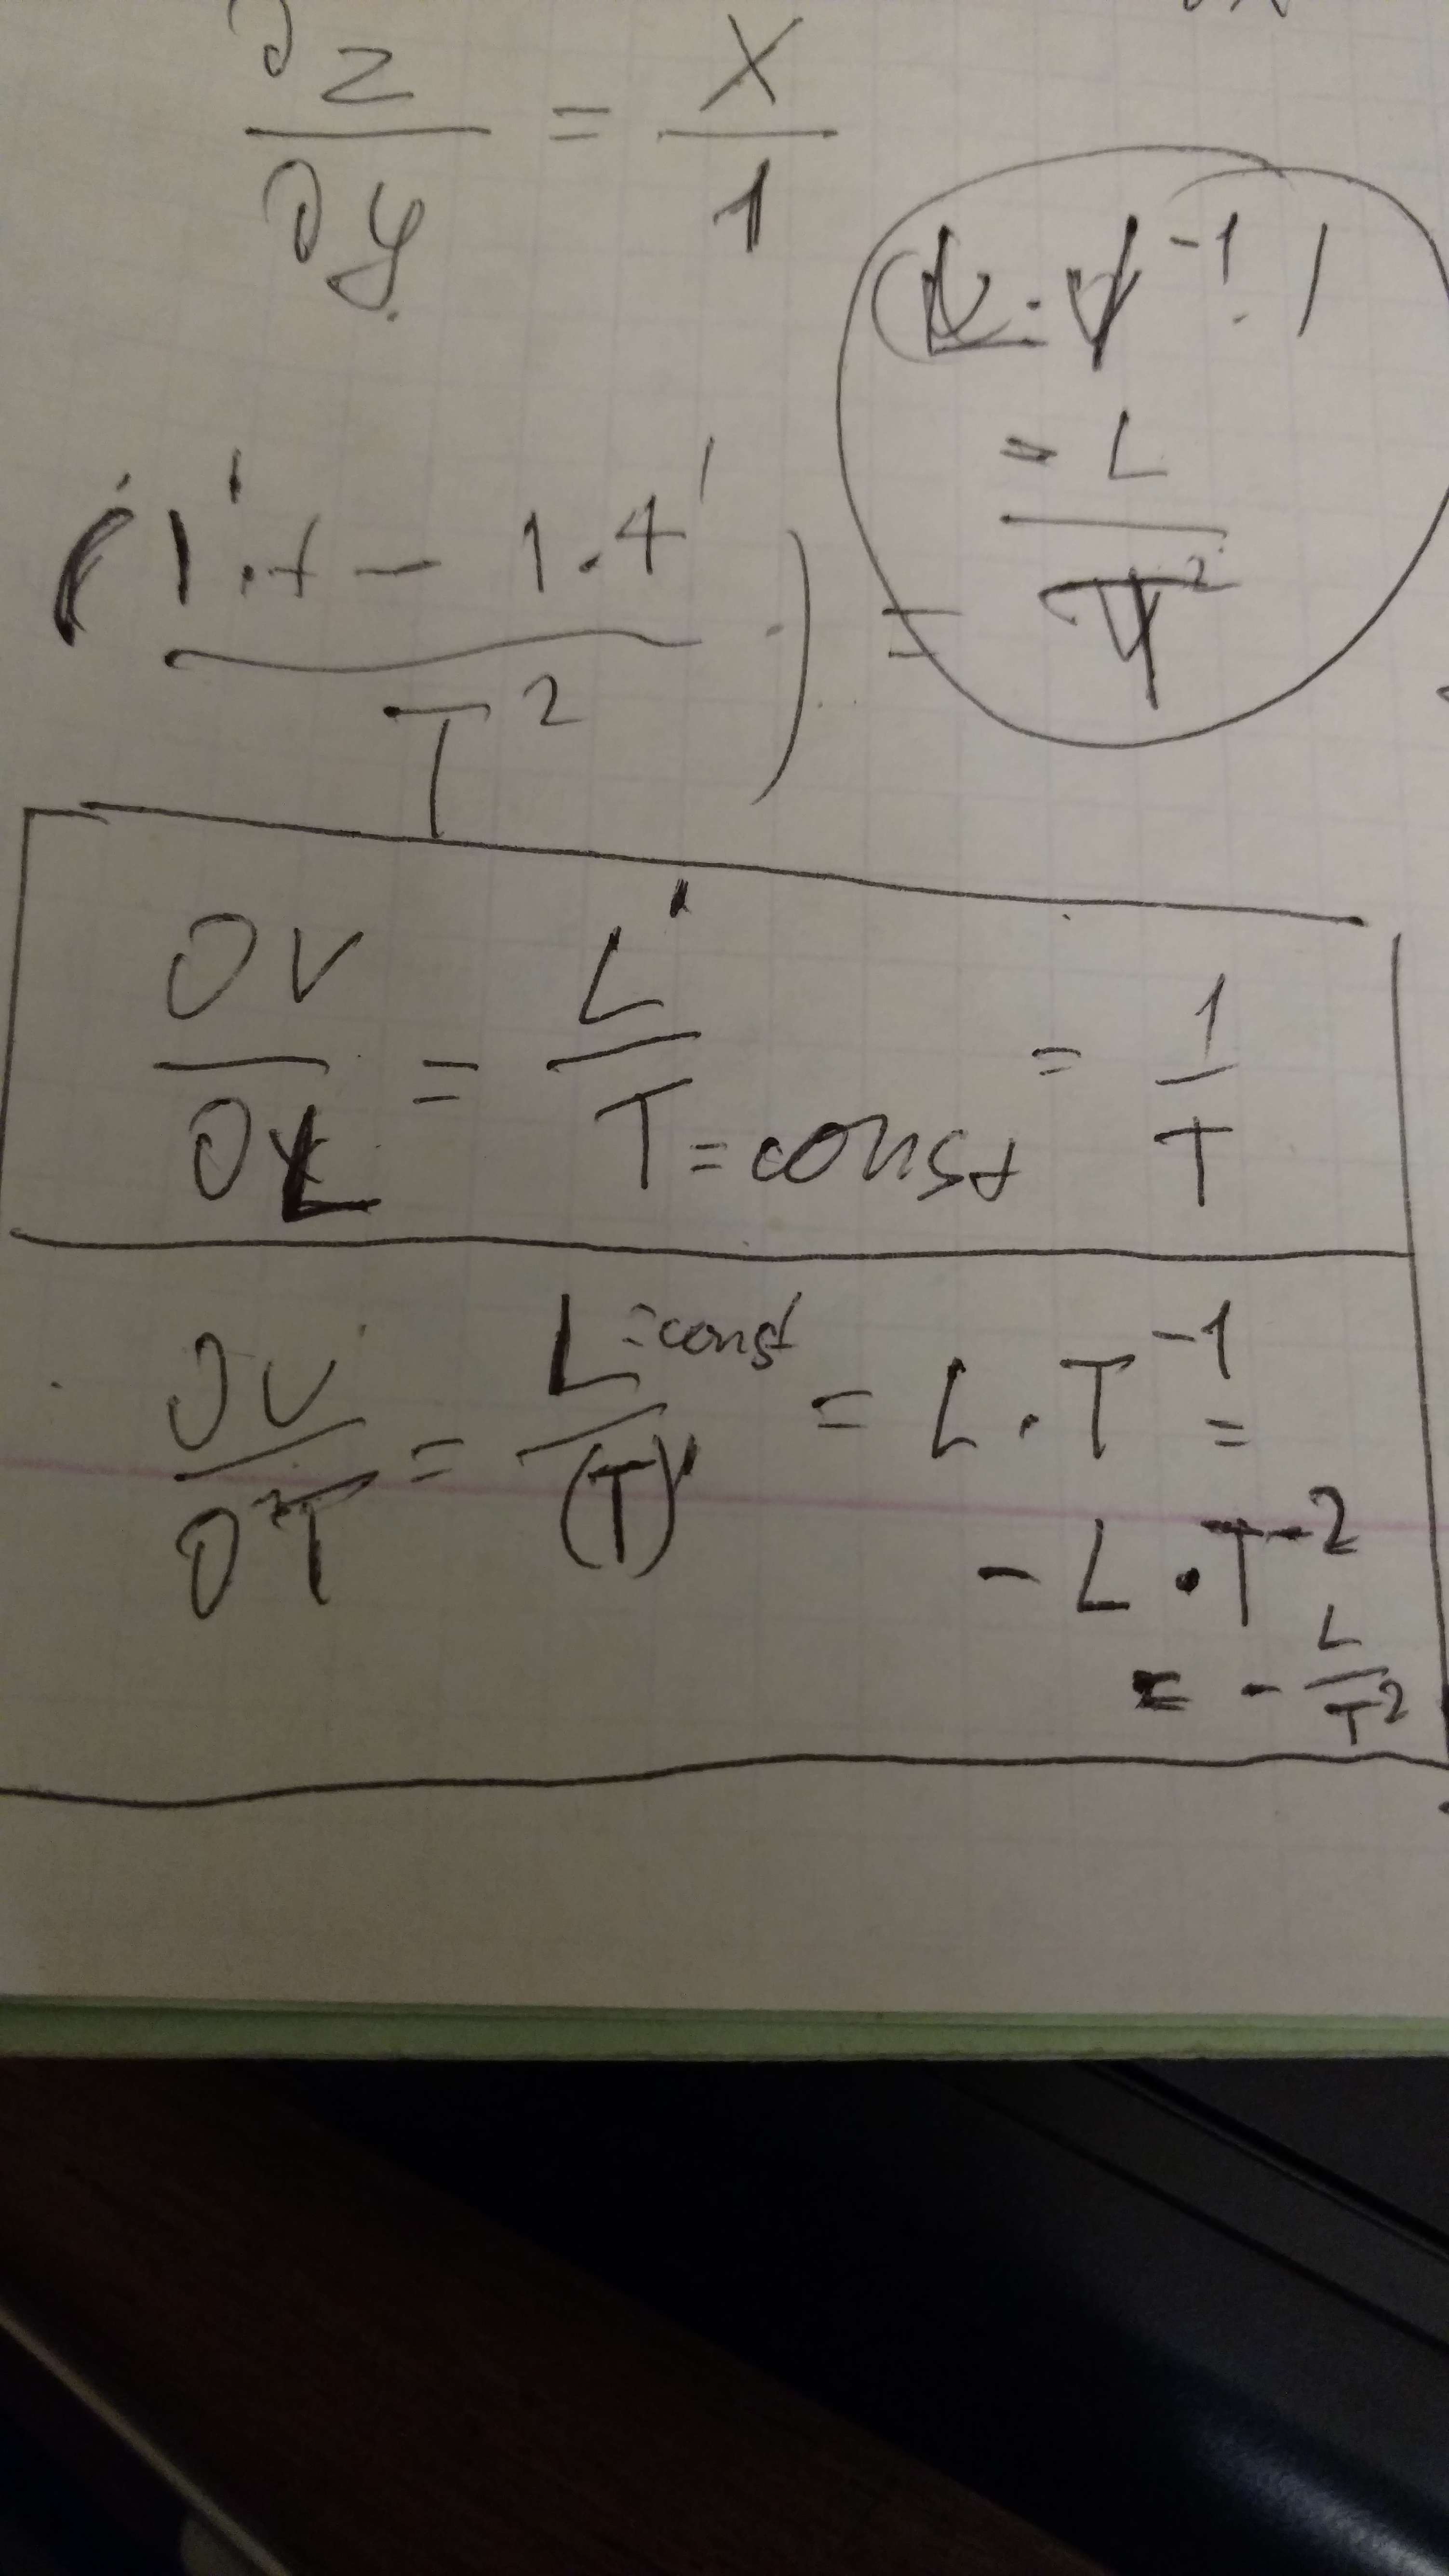 ∂z/∂y = x/1
(1'·t − 1·t')/T² =
L·T⁻¹·1
= L/T²
∂V/∂L = L'/T=const = 1/T
∂V/∂T = L=const/(T)' = L·T⁻¹ =
−L·T⁻²
= −L/T²